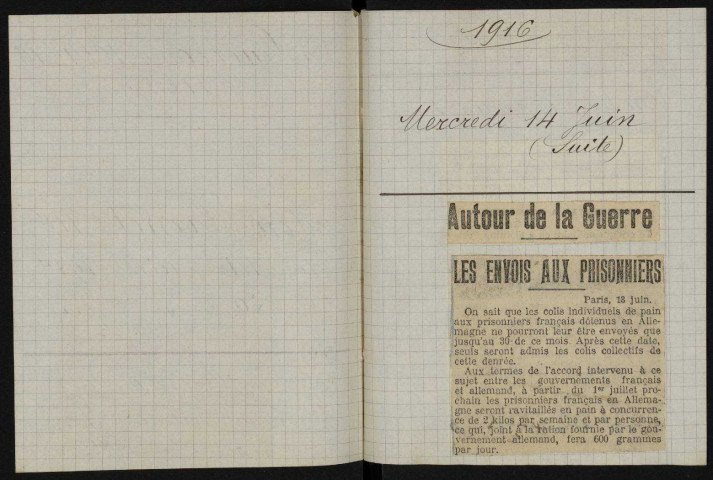 1916
Mercredi 14 Juin
(Suite)
Autour de la Guerre
LES ENVOIS AUX PRISONNIERS
Paris, 13 juin.
On sait que les colis individuels de pain
aux prisonniers français détenus en Alle-
magne ne pourront leur être envoyés que
jusqu'au 30 de ce mois. Après cette date,
seuls seront admis les colis collectifs de
cette denrée.
Aux termes de l'accord intervenu à ce
sujet entre les gouvernements français
et allemand, à partir du 1er juillet pro-
chain les prisonniers français en Allema-
gne seront ravitaillés en pain à concurren-
ce de 2 kilos par semaine et par personne,
ce qui, joint à la ration fournie par le gou-
vernement allemand, fera 600 grammes
par jour.